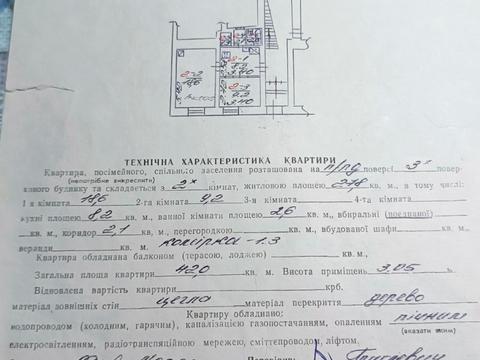 2-1
8.2
3.40
2-2
18.6
2-3
9.2
3.40
ТЕХНІЧНА ХАРАКТЕРИСТИКА КВАРТИРИ
Квартира, посімейного, спільного заселення розташована на п/пд поверсі 3х повер-
(непотрібне викреслити)
хового будинку та складається з 2х кімнат, житловою площею 27,8 кв. м., в тому числі:
1-я кімната 18,6 2-га кімната 9,2 3-я кімната 4-та кімната
кухні площею 8,2 кв. м., ванної кімнати площею 2,6 кв. м., вбиральні (поєднаної)
кв. м., коридор 2,1 кв. м., перегородкою кв. м., вбудованої шафи кв. м.,
веранди кв. м. комірка-1.3
Квартира обладнана балконом (терасою, лоджею) кв. м.
Загальна площа квартири 42,0 кв. м. Висота приміщень 3.05 м.
Відновлена вартість квартири крб.
матеріал зовнішніх стін цегла матеріал перекриття дерево
Квартиру обладнано: пічним
водопроводом (холодним, гарячим), каналізацією газопостачанням, опаленням
(вказати яким)
електроосвітленням, радіотрансляційною мережею, сміттєпроводом, ліфтом.